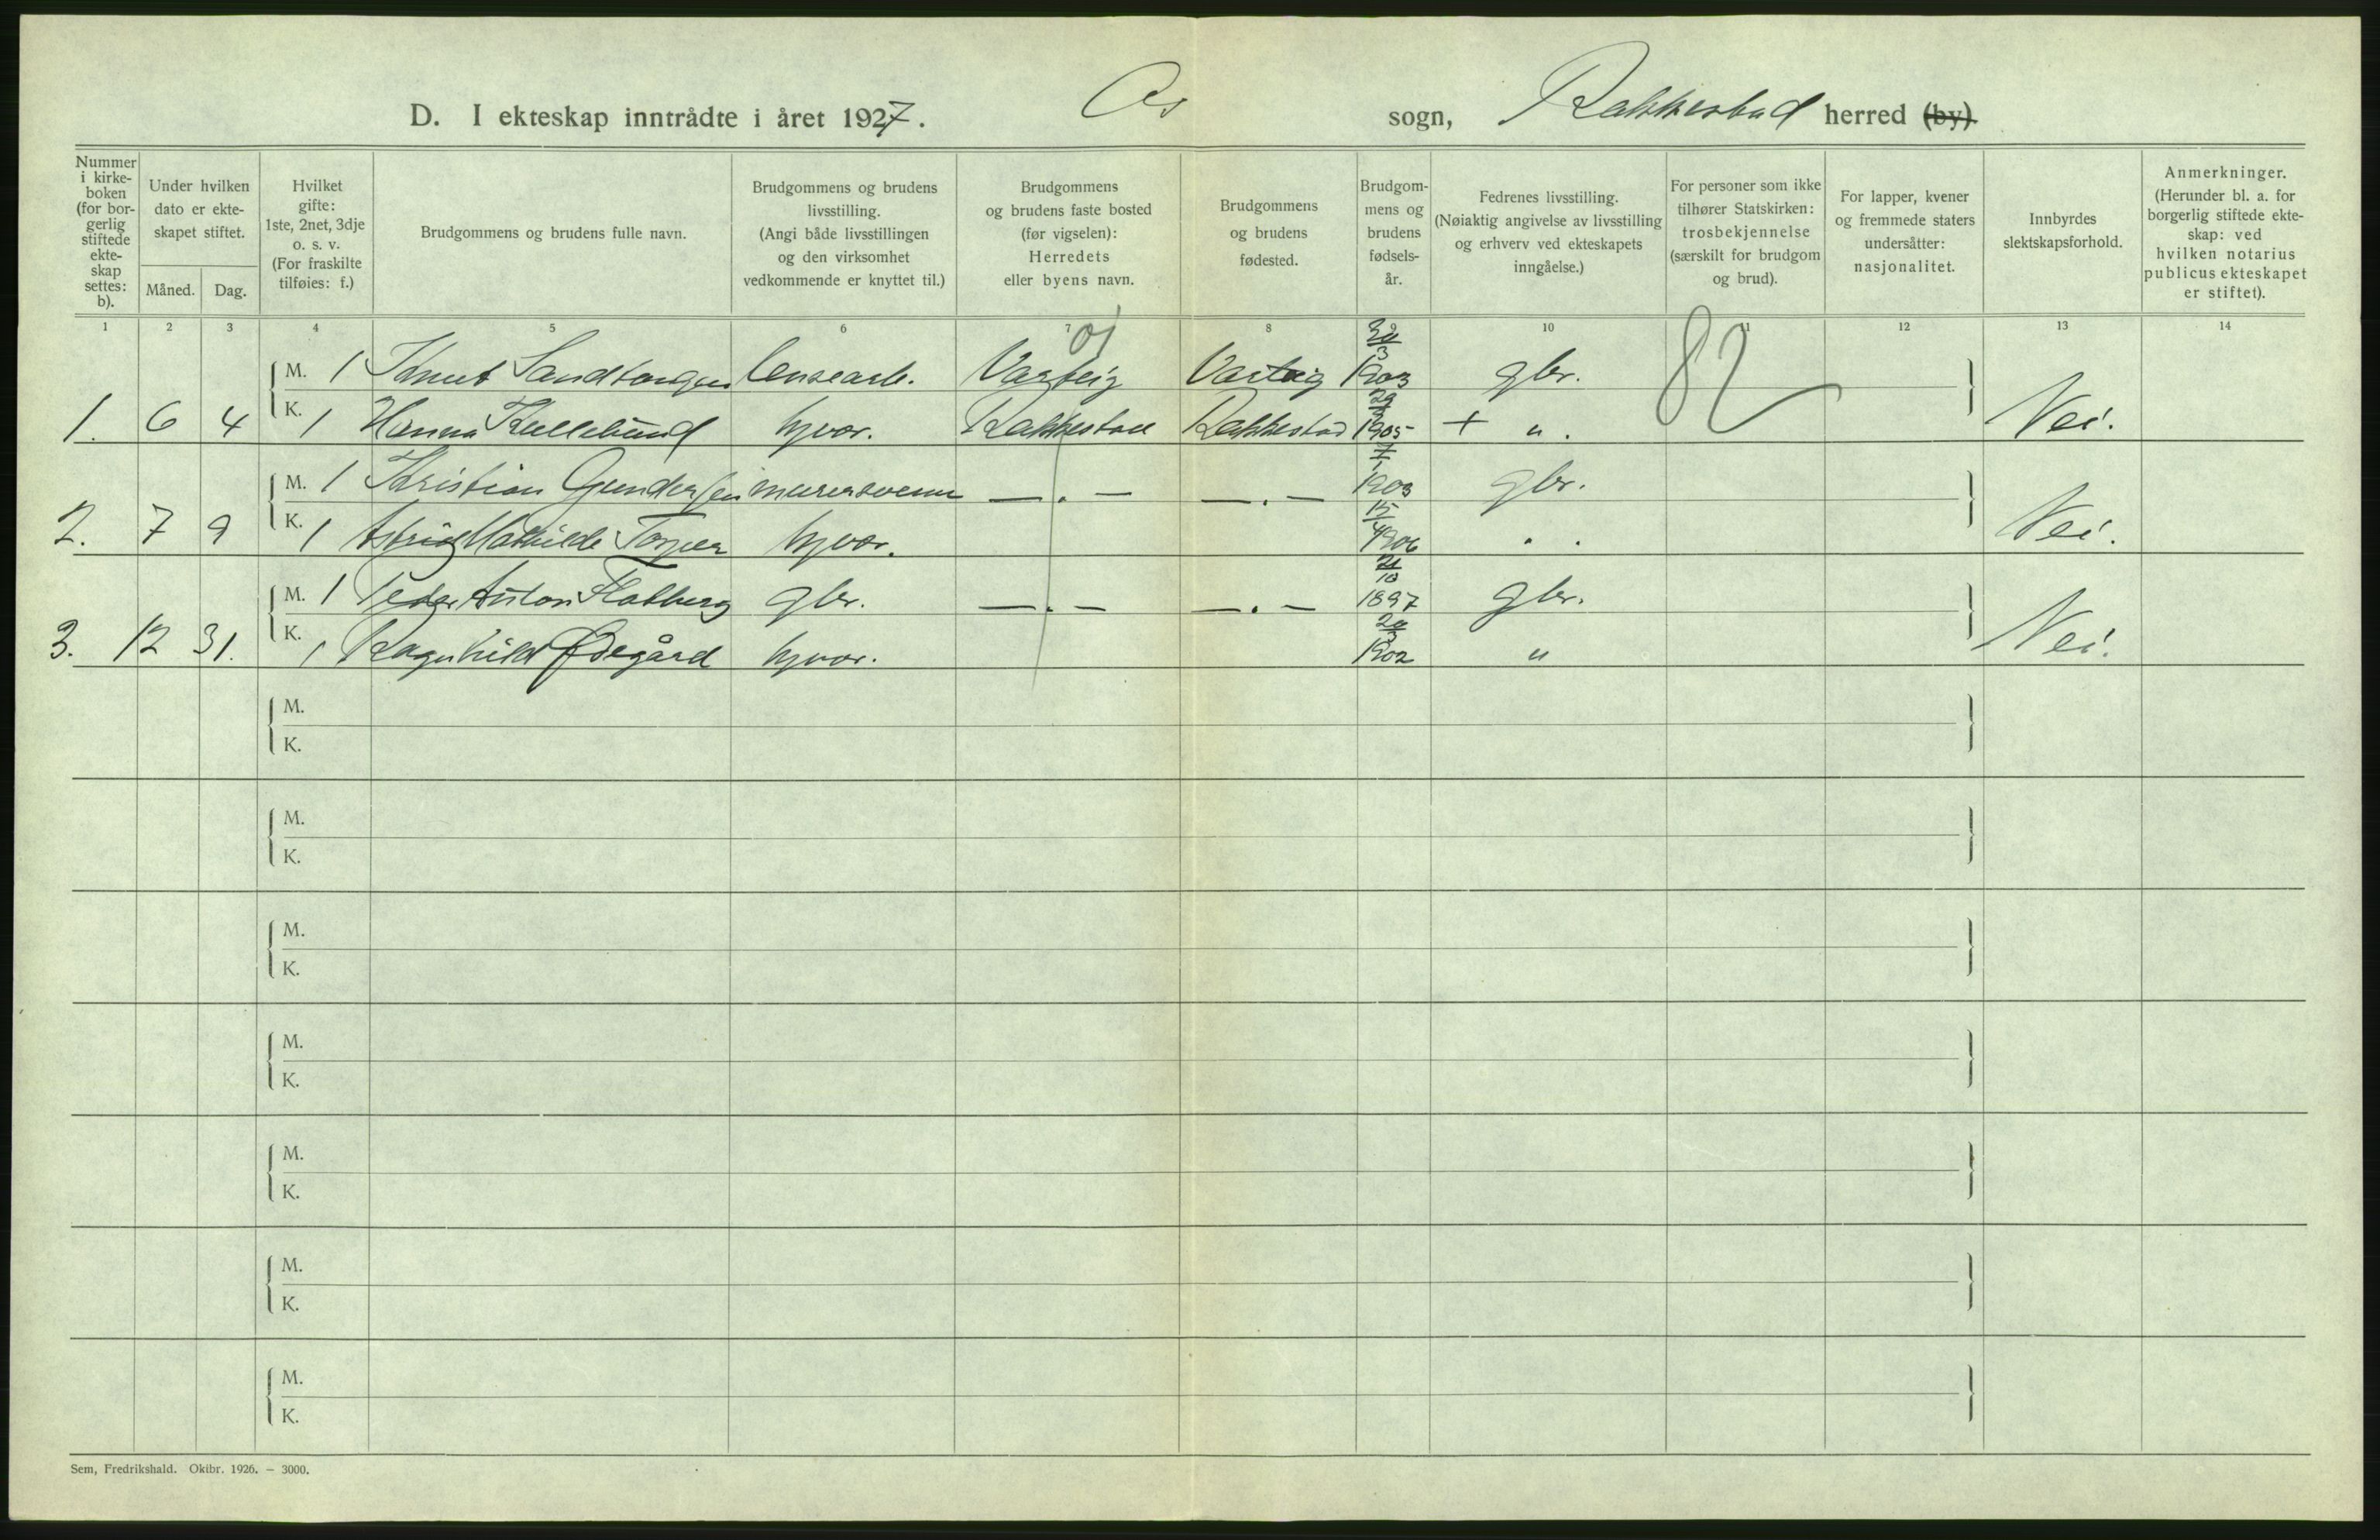 D. I ekteskap inntrådte i året 1927. Os sogn, Rakkestad herred (by)
Nummer i kirke-boken (for bor-gerlig stiftede ekte-skap settes: b).
Under hvilken dato er ekte-skapet stiftet.
Måned. Dag.
Hvilket gifte: 1ste, 2net, 3dje o. s. v. (For fraskilte tilføies: f.)
Brudgommens og brudens fulle navn.
Brudgommens og brudens livsstilling. (Angi både livsstillingen og den virksomhet vedkommende er knyttet til.)
Brudgommens og brudens faste bosted (før vigselen): Herredets eller byens navn.
Brudgommens og brudens fødested.
Brudgom-mens og brudens fødsels-år.
Fedrenes livsstilling. (Nøiaktig angivelse av livsstilling og erhverv ved ekteskapets inngåelse.)
For personer som ikke tilhører Statskirken: trosbekjennelse (særskilt for brudgom og brud).
For lapper, kvener og fremmede staters undersåtter: nasjonalitet.
Innbyrdes slektskapsforhold.
Anmerkninger. (Herunder bl. a. for borgerlig stiftede ekte-skap: ved hvilken notarius publicus ekteskapet er stiftet).
1 2 3 4 5 6 7 8 10 11 12 13 14
01 82
M. 1 Knut Sandtangen lensearb. Varteig Varteig 30/3 1903 gbr.
1. 6 4 K. 1 Hanna Kullebund hjvær. Rakkestad Rakkestad 29/3 1905 + " . Nei.
M. 1 Kristian Gundersen murersvenn — . — — . — 7/1 1903 gbr.
2. 7 9 K. 1 Astrid Mathilde Torper hjvær. 15/4 1906 " . Nei.
M. 1 Peder Anton Flatberg gbr. — . — — . — 21/10 1897 gbr.
3. 12 31. K. 1 Ragnhild Ødegård hjvær. 20/3 1902 " Nei.
M.
K.
M.
K.
M.
K.
M.
K.
M.
K.
M.
K.
M.
K.
Sem, Fredrikshald. Oktbr. 1926. — 3000.